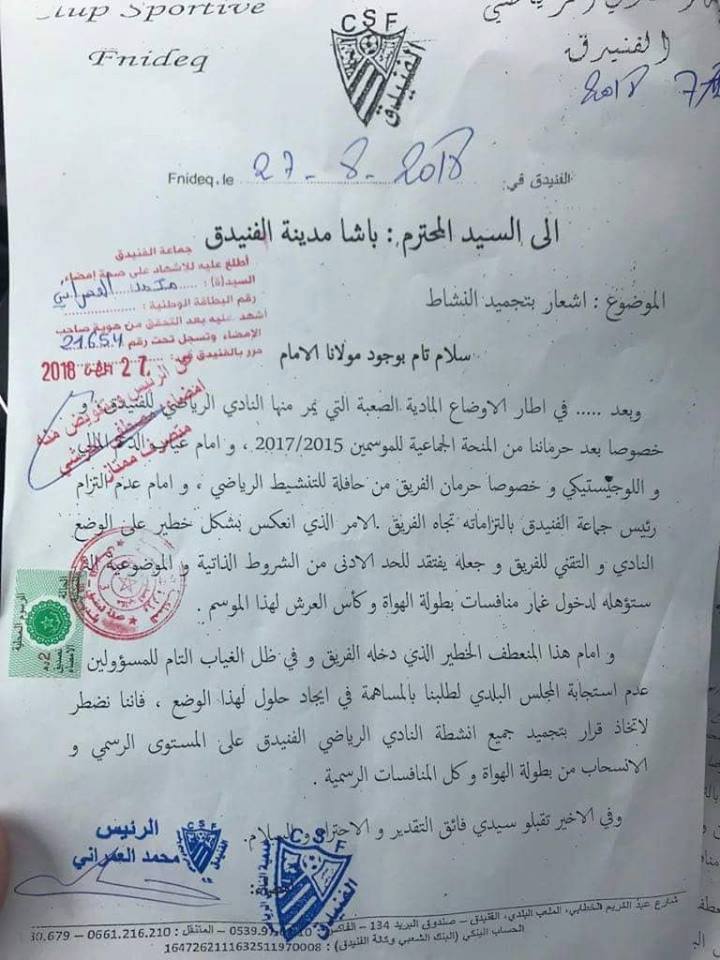 Club Sportive
Fnideq
CSF
الفنيدق
الفنيدق
2018
Fnideq.le 27-8-2018 الفنيدق في:
الى السيد المحترم : باشا مدينة الفنيدق
جماعة الفنيدق
أطلع عليه للاشهاد على صحة إمضاء
السيد(ة) : محمد العمراني
رقم البطاقة الوطنية :
أشهد عليه بعد التحقق من هوية صاحب
الإمضاء وتسجل تحت رقم 21654
حرر بالفنيدق في
27 2018
الموضوع : اشعار بتجميد النشاط
سلام تام بوجود مولانا الامام
عن الرئيس وبتفويض منه
متصرف ممتاز
وبعد ..... في اطار الاوضاع المادية الصعبة التي يمر منها النادي الرياضي للفنيدق و
خصوصا بعد حرماننا من المنحة الجماعية للموسمين 2017/2015 ، و امام غياب الدعم المالي
و اللوجيستيكي و خصوصا حرمان الفريق من حافلة للتنشيط الرياضي ، و امام عدم التزام
رئيس جماعة الفنيدق بالتزاماته تجاه الفريق .الامر الذي انعكس بشكل خطير على الوضع
النادي و التقني للفريق و جعله يفتقد للحد الادنى من الشروط الذاتية و الموضوعية التي
ستؤهله لدخول غمار منافسات بطولة الهواة و كأس العرش لهذا الموسم .
و امام هذا المنعطف الخطير الذي دخله الفريق و في ظل الغياب التام للمسؤولين و
عدم استجابة المجلس البلدي لطلبنا بالمساهمة في ايجاد حلول لهذا الوضع ، فاننا نضطر
لاتخاذ قرار بتجميد جميع انشطة النادي الرياضي الفنيدق على المستوى الرسمي و
الانسحاب من بطولة الهواة و كل المنافسات الرسمية .
وفي الاخير تقبلو سيدي فائق التقدير و الاحترام و السلام.
الرئيس
محمد العمراني
CSF
الفنيدق
CSF
الفنيدق
شارع عبد الكريم الخطابي، الملعب البلدي، الفنيدق - صندوق البريد 134 - الفاكس
المتنقل : 0661.216.210
الحساب البنكي (البنك الشعبي وكالة الفنيدق) : 1647262111632511970008